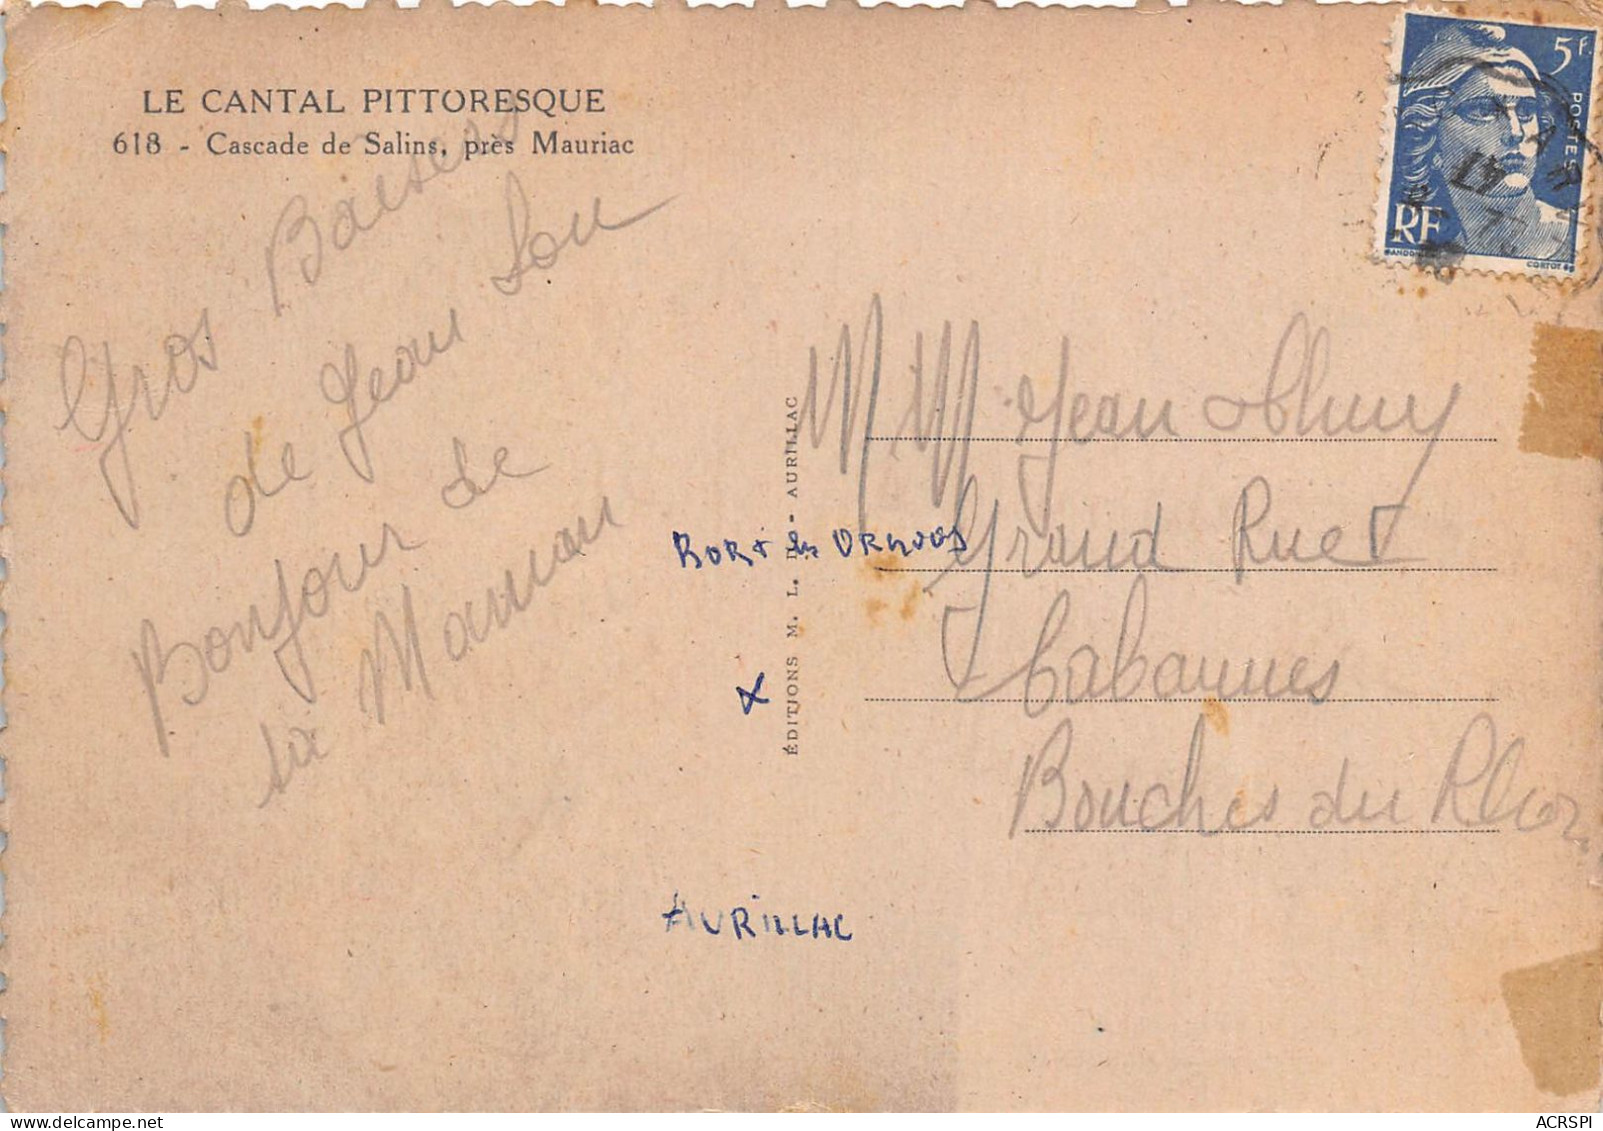 LE CANTAL PITTORESQUE
618 - Cascade de Salins, près Mauriac
Gros Baisers
de Jean Lou
Bonjour de
ta Maman
ÉDITIONS M. L. D. - AURILLAC
BORT les ORGUES
AURILLAC
5F.
POSTES
RF
CORTOT
47
Jean
Grand Rue
Cabannes
Bouches du Rhon
ACRSPI